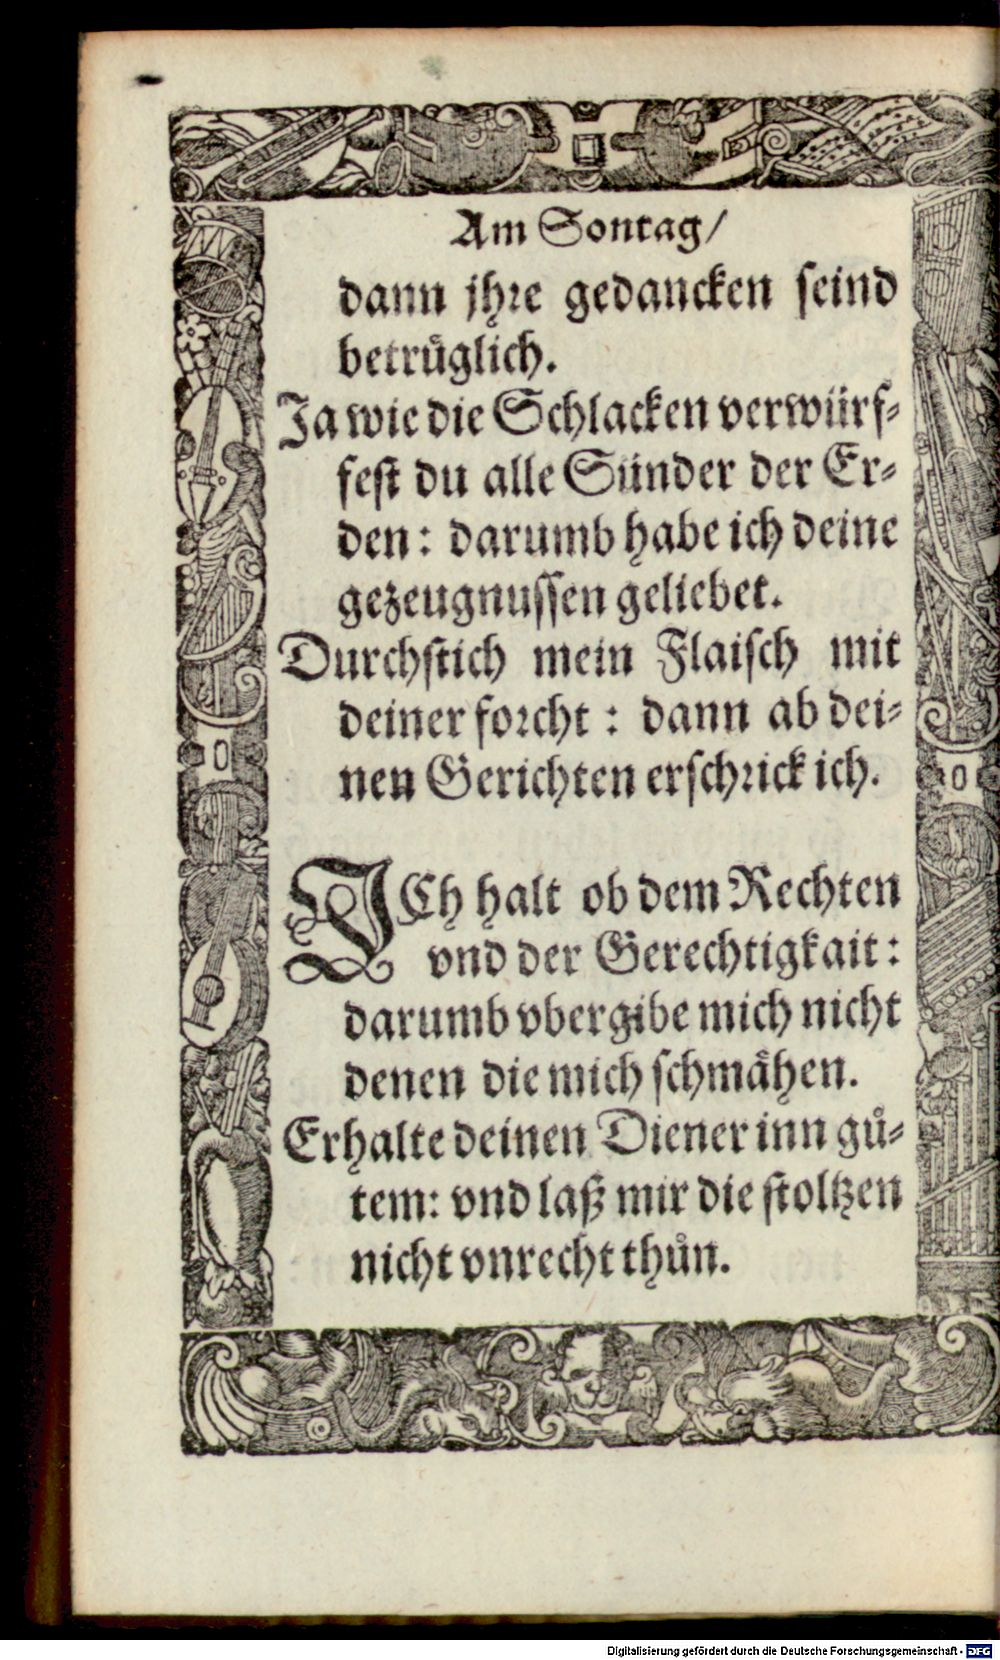 Am Sontag/
dann jhre gedancken seind
betruͤglich.
Ja wie die Schlacken verwürf⸗
fest du alle Sünder der Er⸗
den: darumb habe ich deine
gezeugnussen geliebet.
Durchstich mein Flaisch mit
deiner forcht: dann ab dei⸗
nen Gerichten erschrick ich.
ICh halt ob dem Rechten
vnd der Gerechtigkait:
darumb vbergibe mich nicht
denen die mich schmaͤhen.
Erhalte deinen Diener inn guͤ⸗
tem: vnd laß mir die stoltzen
nicht vnrecht thuͤn.
Digitalisierung gefördert durch die Deutsche Forschungsgemeinschaft - DFG